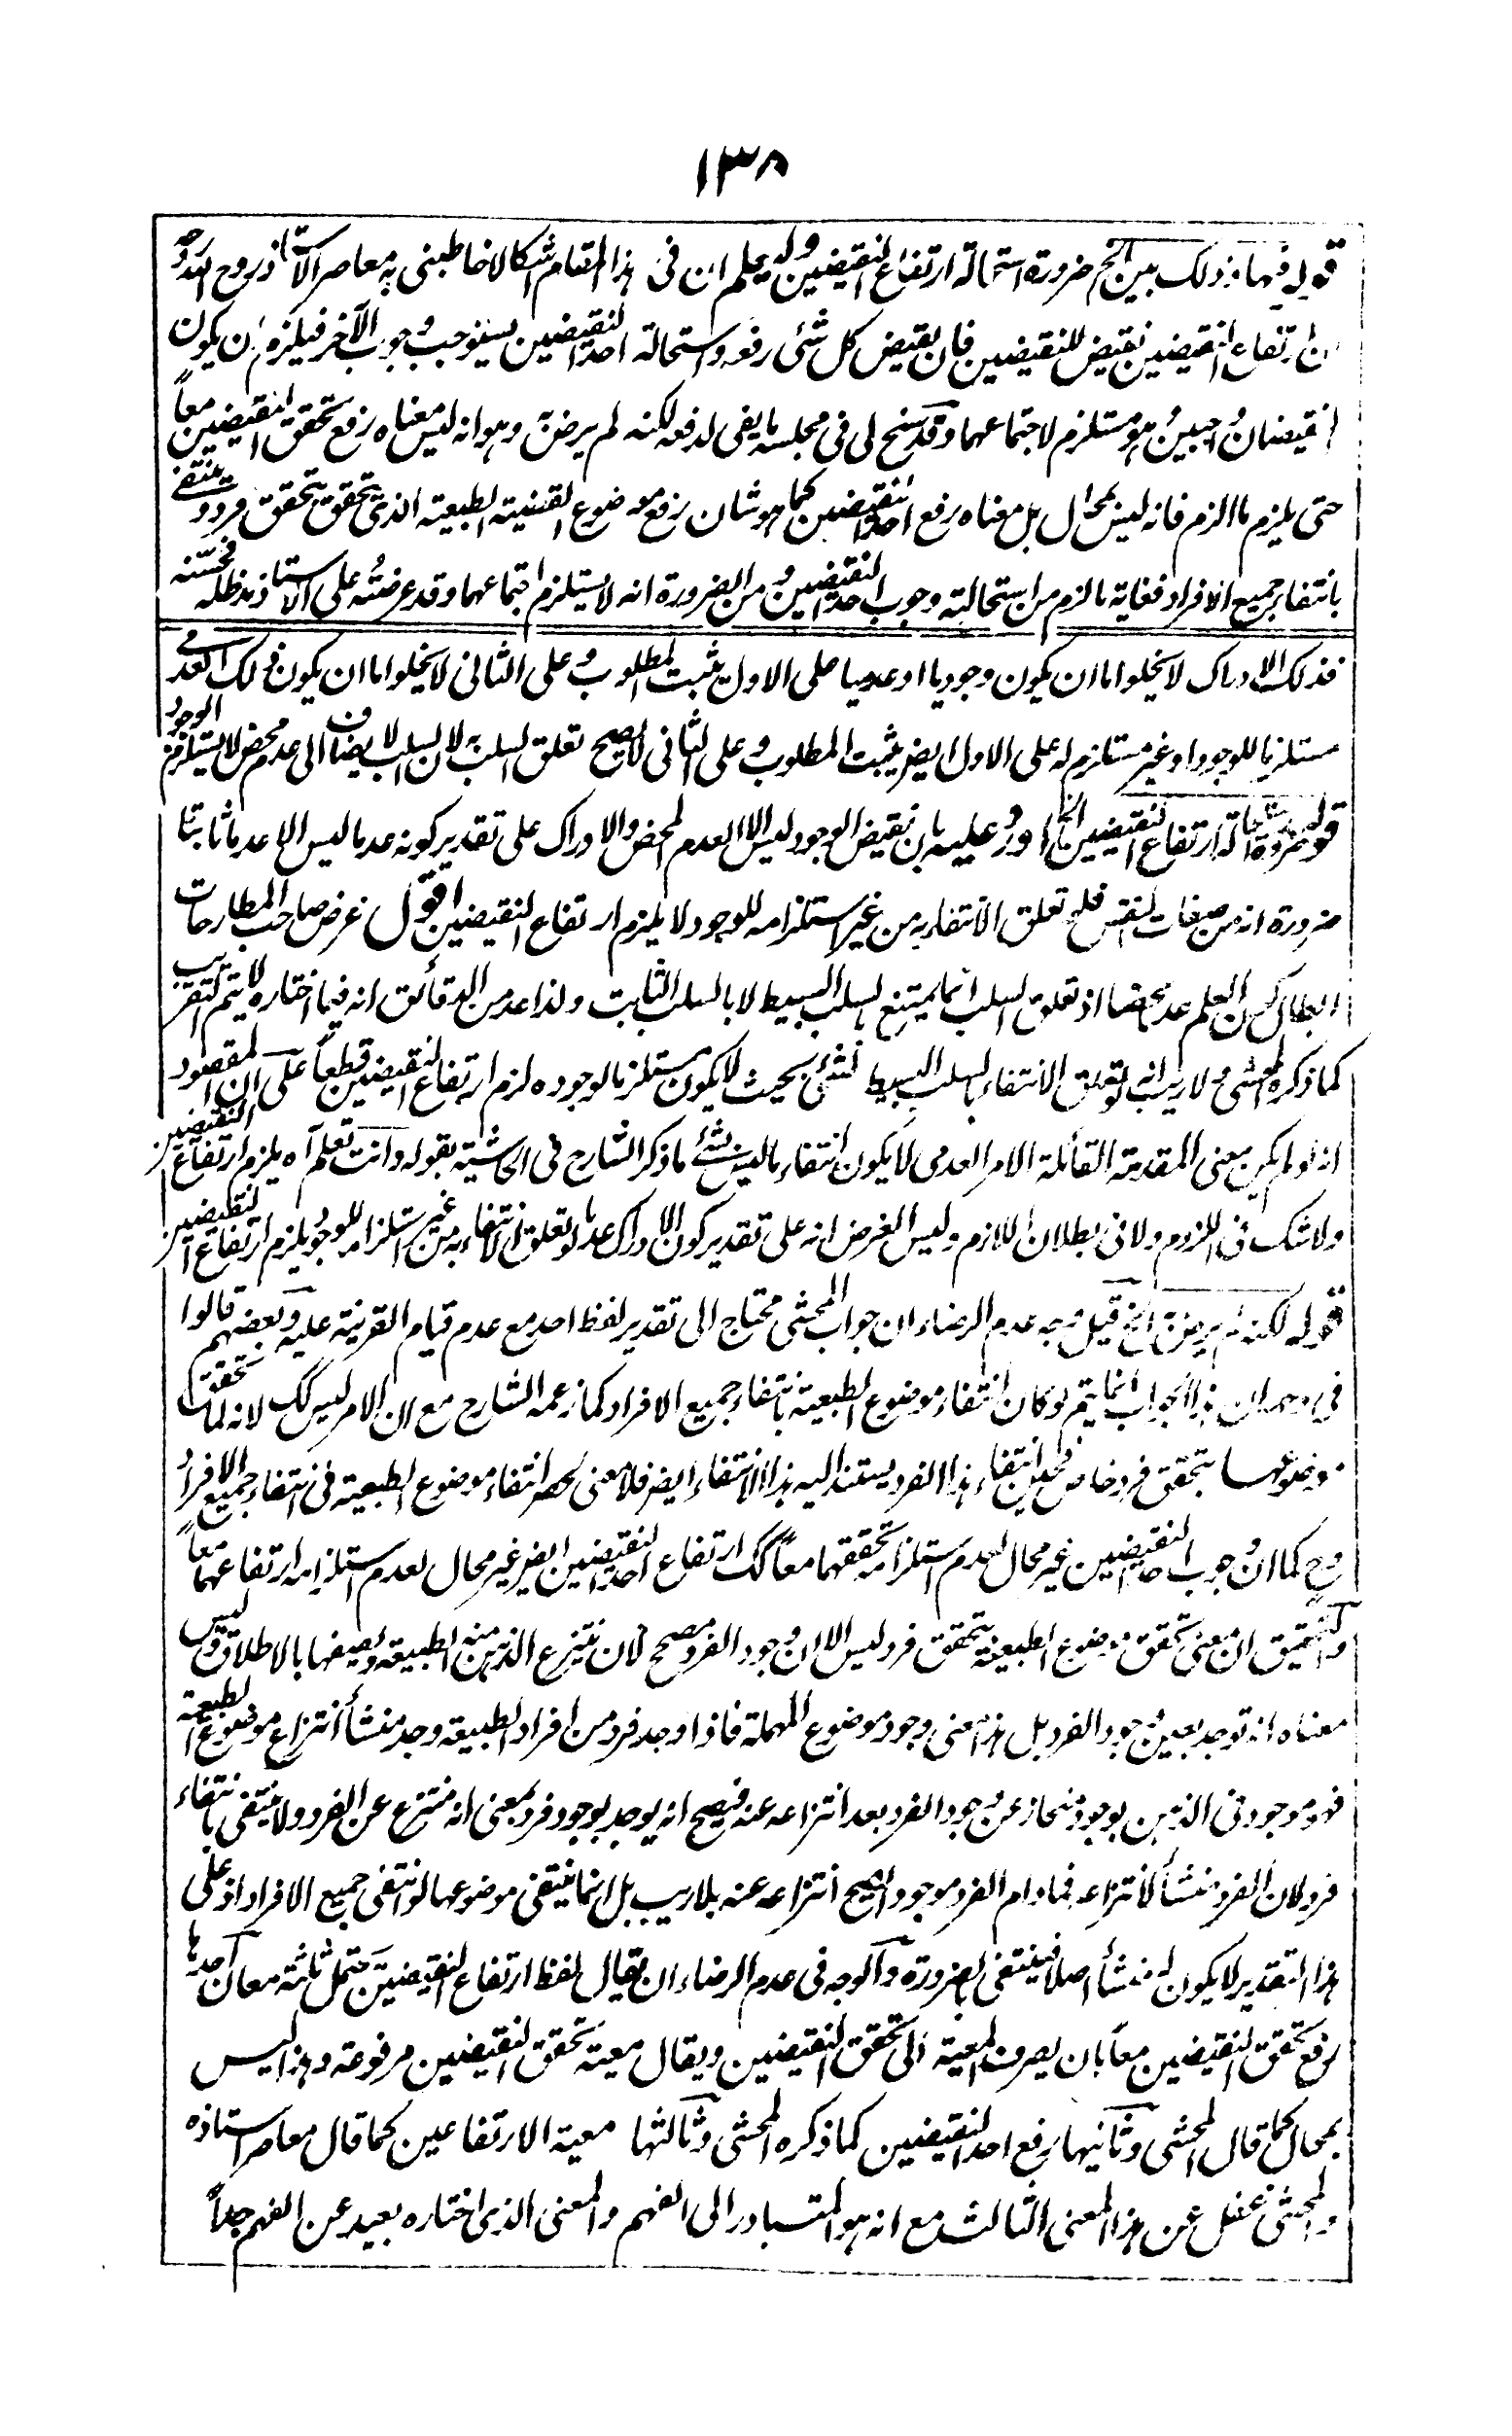 ١٣٨
قوله فيهما وذلك بين الخ ضرورة استحالة ارتفاع النقيضين وليعلم ان فى هذا المقام اشكالا خاطبنى به معاصر الاستاذ روح الله روحه
ان ارتفاع النقيضين نقيض للنقيضين فان نقيض كل شئ رفعه واستحالة احد النقيضين يستوجب وجوب الآخر فيلزم ان يكون
النقيضان واجبين وهو مستلزم لاجتماعهما وقد سنح لى فى مجلسه ما يفى لدفعه لكنه لم يرض به وهو انه ليس معناه رفع تحقق النقيضين معاً
حتى يلزم ما الزم فانه ليس بمحال بل معناه رفع احد النقيضين كما هو شان رفع موضوع القضية الطبعية الذى يتحقق بتحقق فرد وينتفى
بانتفاء جميع الافراد فغاية ما لزم من استحالته وجوب احد النقيضين ومن الضرورة انه لا يستلزم اجتماعهما وقد عرضته على الاستاذ مد ظله فحسنه
فذلك الادراك لا يخلو اما ان يكون وجوديا او عدميا على الاول يثبت المطلوب وعلى الثانى لا يخلوا اما ان يكون ذلك العدمى
مستلزما للوجود او غير مستلزم له على الاول ايضا يثبت المطلوب وعلى الثانى لا يصح تعلق السلب به لان السلب لا يضاف الى عدم محض لا يستلزم الوجود
قوله ضرورة استحالة ارتفاع النقيضين الخ اورد عليه بان نقيض الوجود ليس الا العدم المحض والادراك على تقدير كونه عدما ليس الا عدما ثابتا
ضرورة انه من صفات النفس فلو تعلق الانتفاء به من غير استلزامه للوجود لا يلزم ارتفاع النقيضين اقول غرض صاحب المطارحات
ابطال كون العلم عدما محضا اذ تعلق السلب انما يمتنع بالسلب البسيط لا بالسلب الثابت ولذا عد من الدقائق انه فيما اختاره لا يتم التقريب
كما ذكره المحشى ولا ريب انه لو تعلق الانتفاء بالسلب البسيط لشئ بحيث لا يكون مستلزما لوجوده لزم ارتفاع النقيضين قطعاً على ان المقصود
انه لو لم يكن معنى المقدمة القائلة الامر العدمى لا يكون انتفاء ما ليس بشئ ما ذكر الشارح فى الحاشية بقوله وانت تعلم آه يلزم ارتفاع النقيضين
ولا شك فى اللزوم ولا فى بطلان اللازم وليس الغرض انه على تقدير كون الادراك عدما لو تعلق الانتفاء به من غير استلزامه للوجود يلزم ارتفاع النقيضين
قوله لكنه لم يرض به الخ قيل وجه عدم الرضاء ان جواب المحشى محتاج الى تقدير لفظ احد مع عدم قيام القرينة عليه وبعضهم قالوا
فى وجهه ان هذا الجواب انما يتم لو كان انتفاء موضوع الطبعية بانتفاء جميع الافراد كما زعمه الشارح مع ان الامر ليس كك لانه لما تحقق
موضوعها بتحقق فرد خاص فحين انتفاء هذا الفرد يستند اليه هذا الانتفاء ايضا فلا معنى لحصر انتفاء موضوع الطبعية فى انتفاء جميع الافراد
وح كما ان وجوب احد النقيضين غير محال لعدم استلزامه تحققهما معاً كك ارتفاع احد النقيضين ايضا غير محال لعدم استلزامه ارتفاعهما معاً
والتحقيق ان معنى تحقق موضوع الطبعية بتحقق فرد ليس الا ان وجود الفرد مصحح لان ينتزع الذهن منه الطبيعة ويصفها بالاطلاق وليس
معناه انه توجد بعين وجود الفرد بل هذا معنى وجود موضوع المهملة فاذا وجد فرد من افراد الطبيعة وجد منشأ انتزاع موضوع الطبعية
فهو موجود فى الذهن بوجود منحاز عن وجود الفرد بعد انتزاعه عنه فيصح انه يوجد بوجود فرد بمعنى انه منتزع عن الفرد ولا ينتفى بانتفاء
فرد لان الفرد منشأ لانتزاعه فما دام الفرد موجودا يصح انتزاعه عنه بلا ريب بل انما ينتفى موضوعها لو انتفى جميع الافراد اذ على
هذا التقدير لا يكون له منشأ اصلا فينتفى بالضرورة والوجه فى عدم الرضاء ان يقال لفظ ارتفاع النقيضين يحتمل ثلثة معان احدها
رفع تحقق النقيضين معاً بان يصرف المعية الى تحقق النقيضين ويقال معية تحقق النقيضين مرفوعة وهذا ليس
بمحال كما قال المحشى وثانيها رفع احد النقيضين كما ذكره المحشى وثالثها معية الارتفاعين كما قال معاصر استاذه
والمحشى غفل عن هذا المعنى الثالث مع انه هو المتبادر الى الفهم والمعنى الذى اختاره بعيد عن الفهم جداً